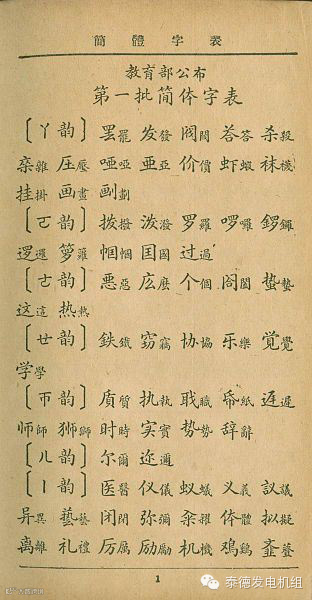 簡體字表
教育部公布
第一批简体字表
〔ㄚ韵〕罢罷 发發 阀閥 荅答 杀殺
杂雜 压壓 哑啞 亚亞 价價 虾蝦 袜襪
挂掛 画畫 劃
〔ㄛ韵〕拨撥 泼潑 罗羅 啰囉 鑼
逻邏 箩籮 帼幗 国國 过過
〔ㄜ韵〕恶惡 庅麼 个個 阁閣 蛰蟄
这這 热熱
〔ㄝ韵〕鉄鐵 窃竊 协協 乐樂 觉覺
学學
〔ㄭ韵〕质質 执執 耺職 帋紙 迟遲
师師 狮獅 时時 实實 势勢 辞辭
〔ㄦ韵〕尔爾 迩邇
〔ㄧ韵〕医醫 仪儀 蚁蟻 义義 議
异異 藝 闭閉 弥彌 籴糴 体體 拟擬
离離 礼禮 厉厲 励勵 机機 鸡鷄
1
泰德发电机组